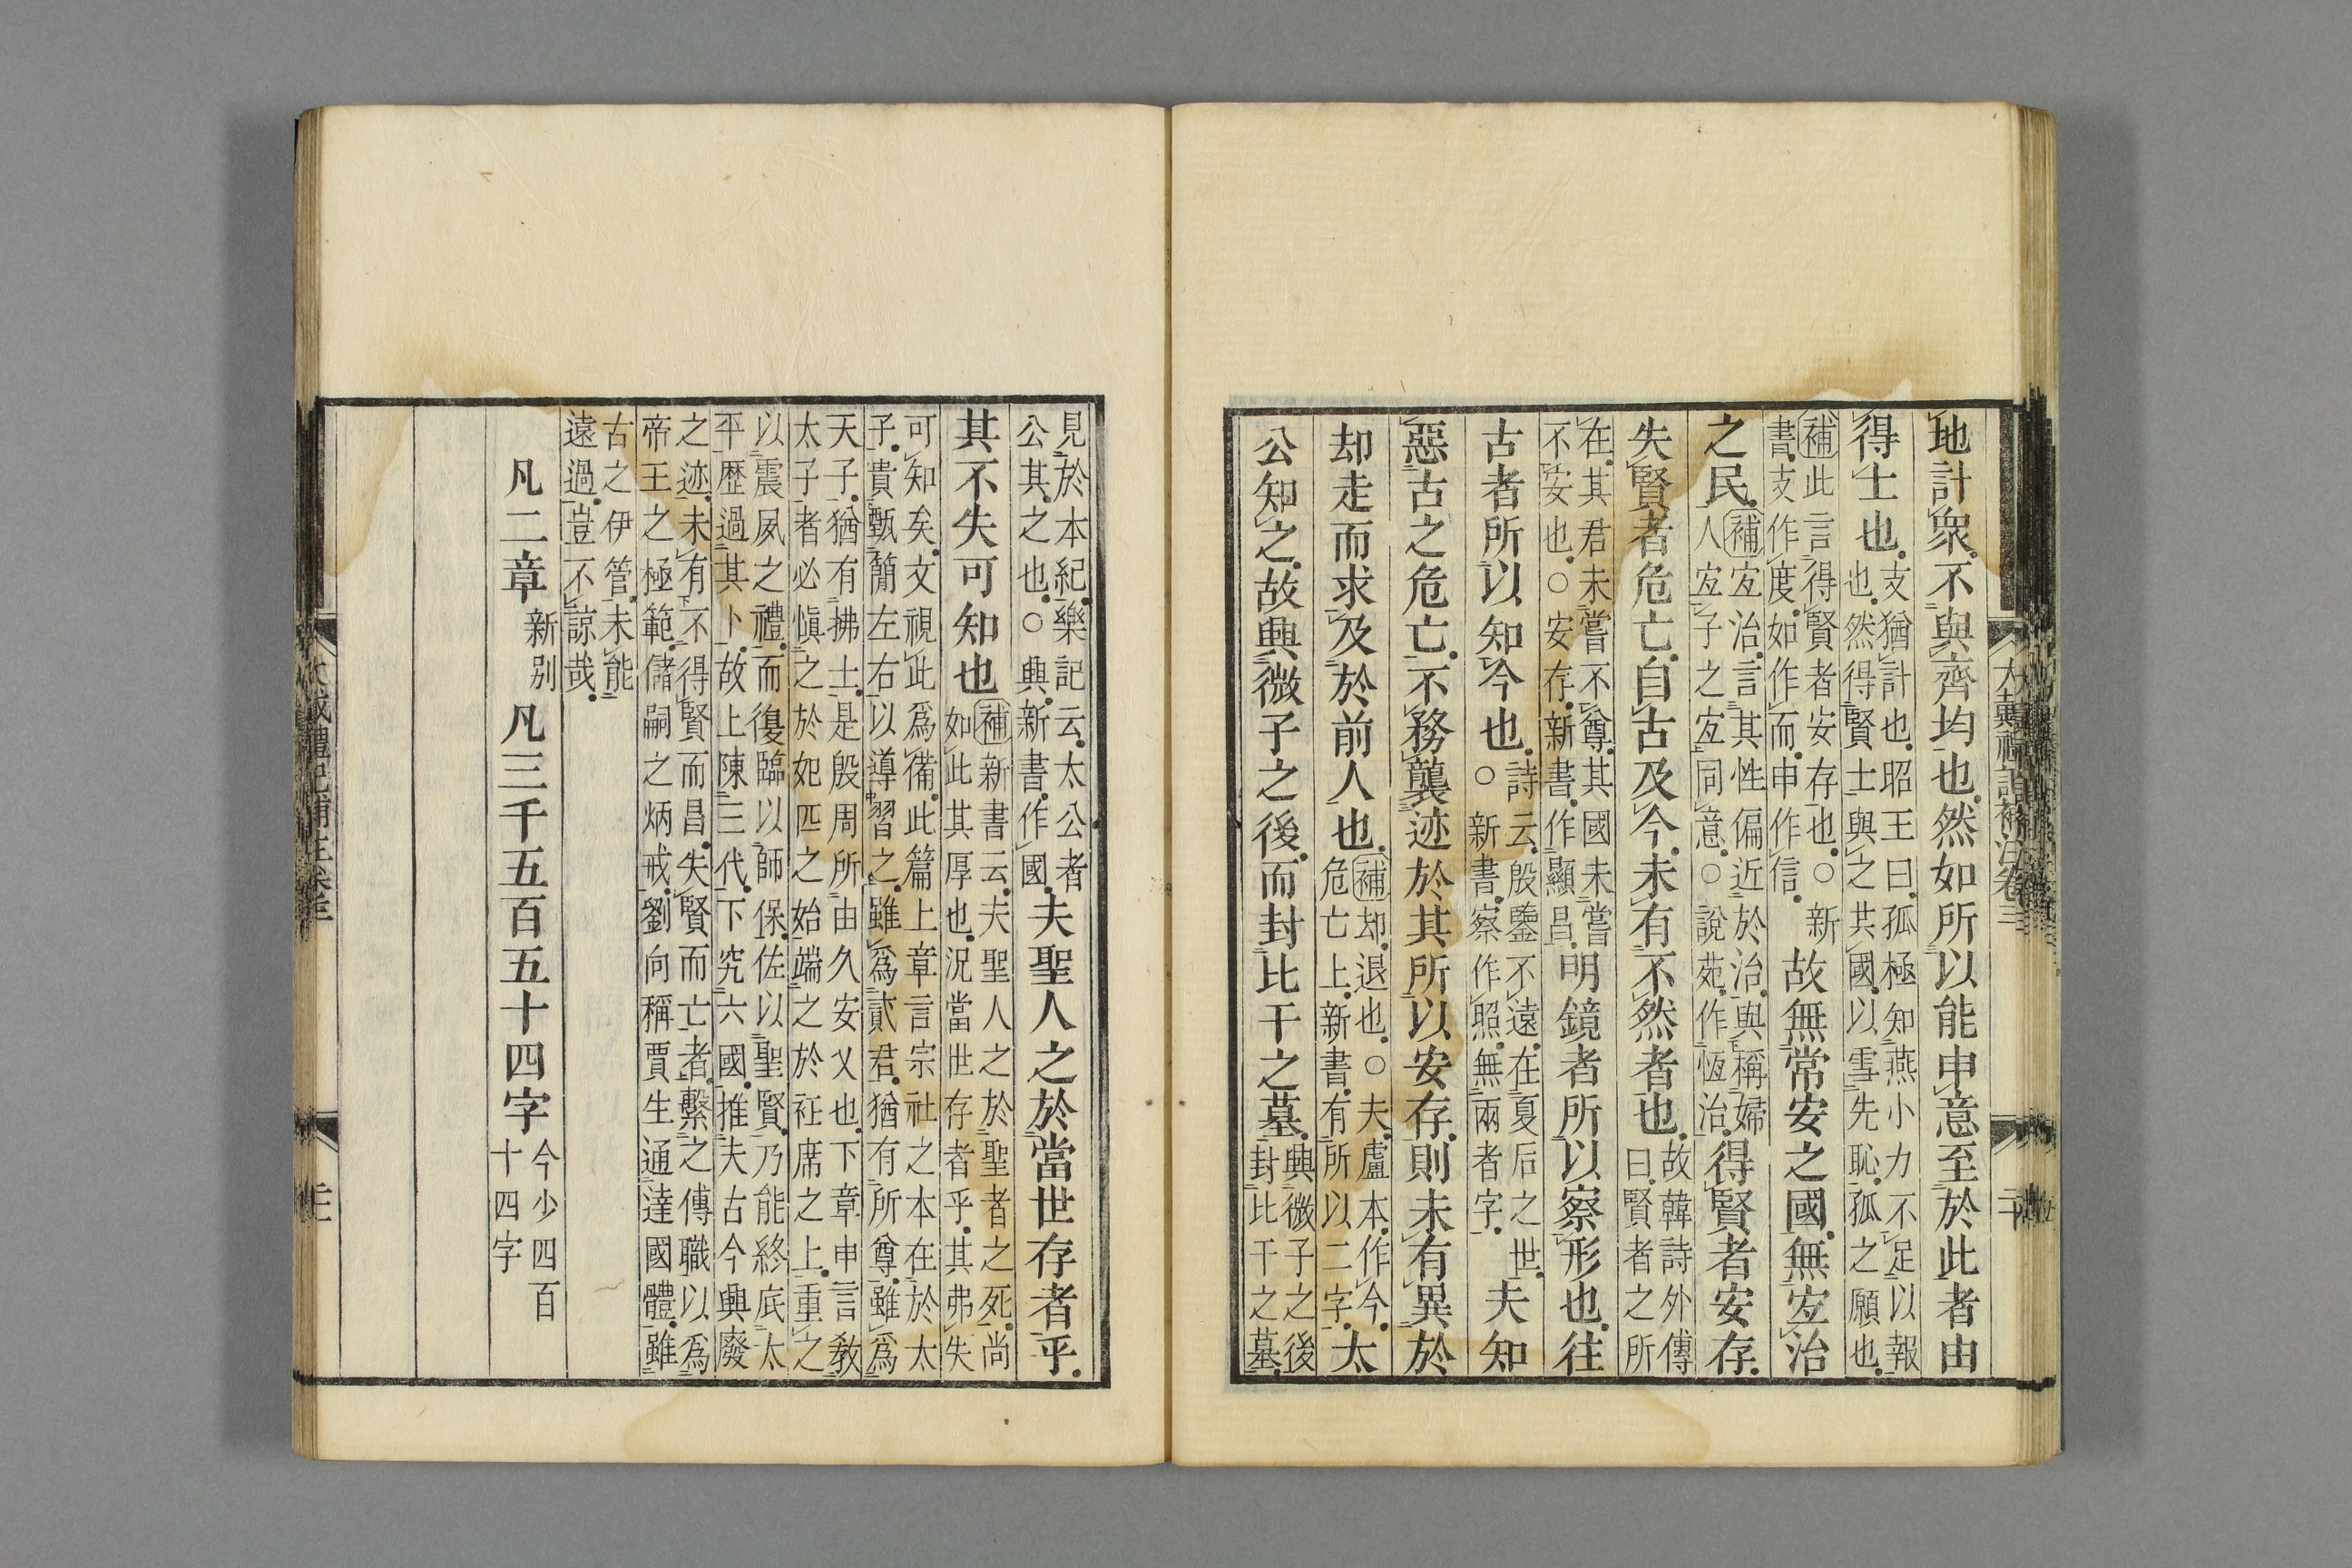 地計衆不與齊均也然如所以能申意至於此者由
得士也支猶計也昭王曰孤極知燕小力不足以報
也然得賢士與之共國以雪先恥孤之願也
補此言得賢者安存也○新
書支作度如作而申作信故無常安之國無宐治
之民補宐治言其性偏近於治與稱婦
人宐子之宐同意○說苑作恆治得賢者安存
失賢者危亡自古及今未有不然者也故韓詩外傳
曰賢者之所
在其君未嘗不尊其國未嘗
不安也○安存新書作顯昌明鏡者所以察形也往
古者所以知今也詩云殷鑒不遠在夏后之世
○新書察作照無兩者字夫知
惡古之危亡不務襲迹於其所以安存則未有異於
却走而求及於前人也補却退也○夫盧本作今
危亡上新書有所以二字太
公知之故興微子之後而封比干之墓興微子之後
封比干之墓
大戴禮記補注卷三
二十
見於本紀樂記云太公者
公其之也○興新書作國夫聖人之於當世存者乎
其不失可知也補新書云夫聖人之於聖者之死尚
如此其厚也況當世存者乎其弗失
可知矣文視此爲備此篇上章言宗社之本在於太
子貴甄簡左右以導習之雖爲貳君猶有所尊雖爲
天子猶有拂士是殷周所由久安乂也下章申言教
太子者必愼之於妃匹之始端之於衽席之上重之
以震夙之禮而復臨以師保佐以聖賢乃能終底太
平歷過其卜故上陳三代下究六國推夫古今興廢
之迹未有不得賢而昌失賢而亡者繫之傳職以爲
帝王之極範儲嗣之炳戒劉向稱賈生通達國體雖
古之伊管未能
遠過豈不諒哉
凡二章新別凡三千五百五十四字今少四百
十四字
大戴禮記補注卷三